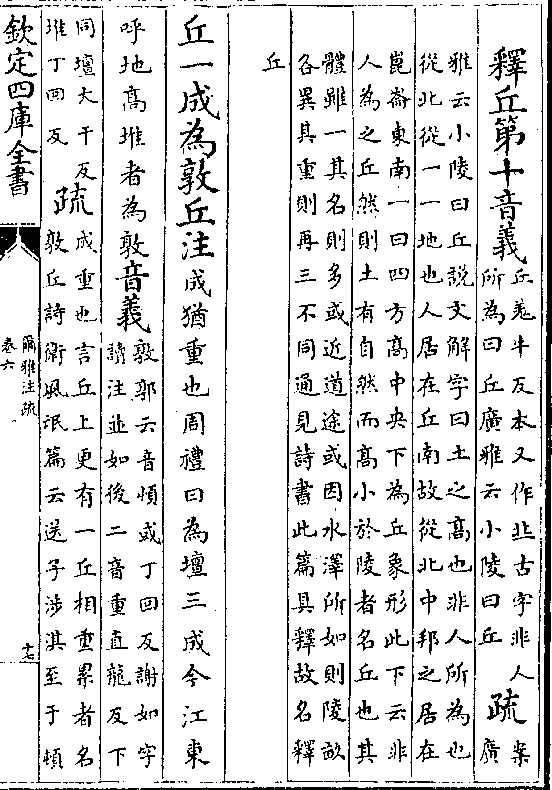 釋丘第十音義丘羌牛反本又作丠古字非人
所為曰丘廣雅云小陵曰丘
疏案
廣
雅云小陵曰丘說文解字曰土之高也非人所為也
從北從一一地也人居在丘南故從北中邦之居在
崑崙東南一曰四方高中央下為丘象形此下云非
人為之丘然則土有自然而高小於陵者名丘也其
體雖一其名則多或近道途或因水澤所如則陵畝
各異其重則再三不同通見詩書此篇具釋故名釋
丘
丘一成為敦丘注成猶重也周禮曰為壇三成今江東
呼地高堆者為敦音義敦郭云音頓或丁回反謝如字
讀注並如後二音重直龍反下
同壇大干反
堆丁回反
疏成重也言丘上更有一丘相重累者名
敦丘詩衛風氓篇云送子涉淇至于頓
欽定四庫全書
爾雅注疏
卷六
十七